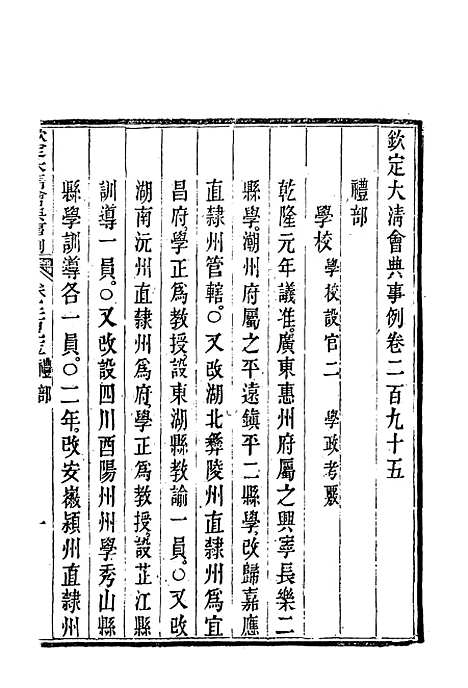 欽定大清會典事例卷二百九十五
禮部
學校 學校設官二 學政考覈
乾隆元年議准。廣東惠州府屬之興寧長樂二
縣學。潮州府屬之平遠鎮平二縣學。改歸嘉應
直隸州管轄。〇又改湖北彝陵州直隸州爲宜
昌府。學正爲教授。設東湖縣教諭一員。〇又改
湖南沅州直隸州爲府。學正爲教授。設芷江縣
訓導一員。〇又改設四川酉陽州州學。秀山縣
縣學訓導各一員。〇二年。改安徽潁州直隸州
禮部 一